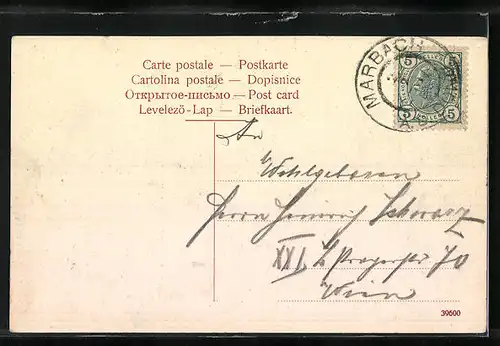 Carte postale — Postkarte
Cartolina postale — Dopisnice
Открытое-письмо — Post card
Levelezö-Lap — Briefkaart.
MARBACH
5 5
5 5
An
Wohlgeboren
Herrn Heinrich Schwarz
XXI. Pragerstr 70
Wien
39500